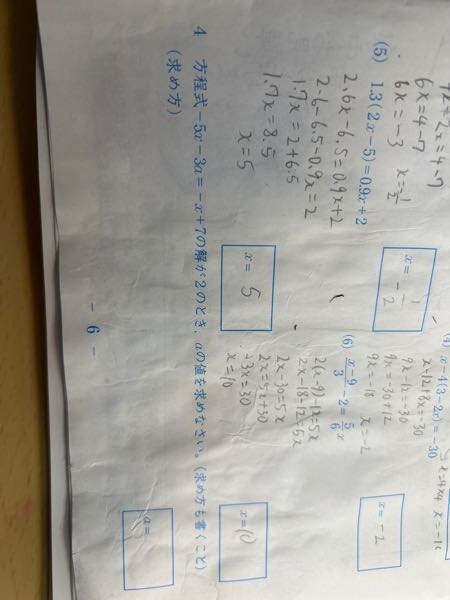 6x=4-7
6x=-3 x=1/2
x= -1/2
(4) x-4(3-2x)=-30
x-12+8x=-30
9x-12=-30
9x=-30+12
9x=-18 x=-2
x= -2
(5) 1.3(2x-5)=0.9x+2
2.6x-6.5=0.9x+2
2.6-6.5-0.9x=2
1.7x=2+6.5
1.7x=8.5
x=5
x= 5
(6) x-9/3-2=5/6x
2(x-9)-12=5x
2x-18-12=5x
2x-30=5x
2x=5x+30
-3x=30
x=10
x=10
4 方程式-5x-3a=-x+7の解が2のとき，aの値を求めなさい。(求め方も書くこと)
(求め方)
a=
- 6 -